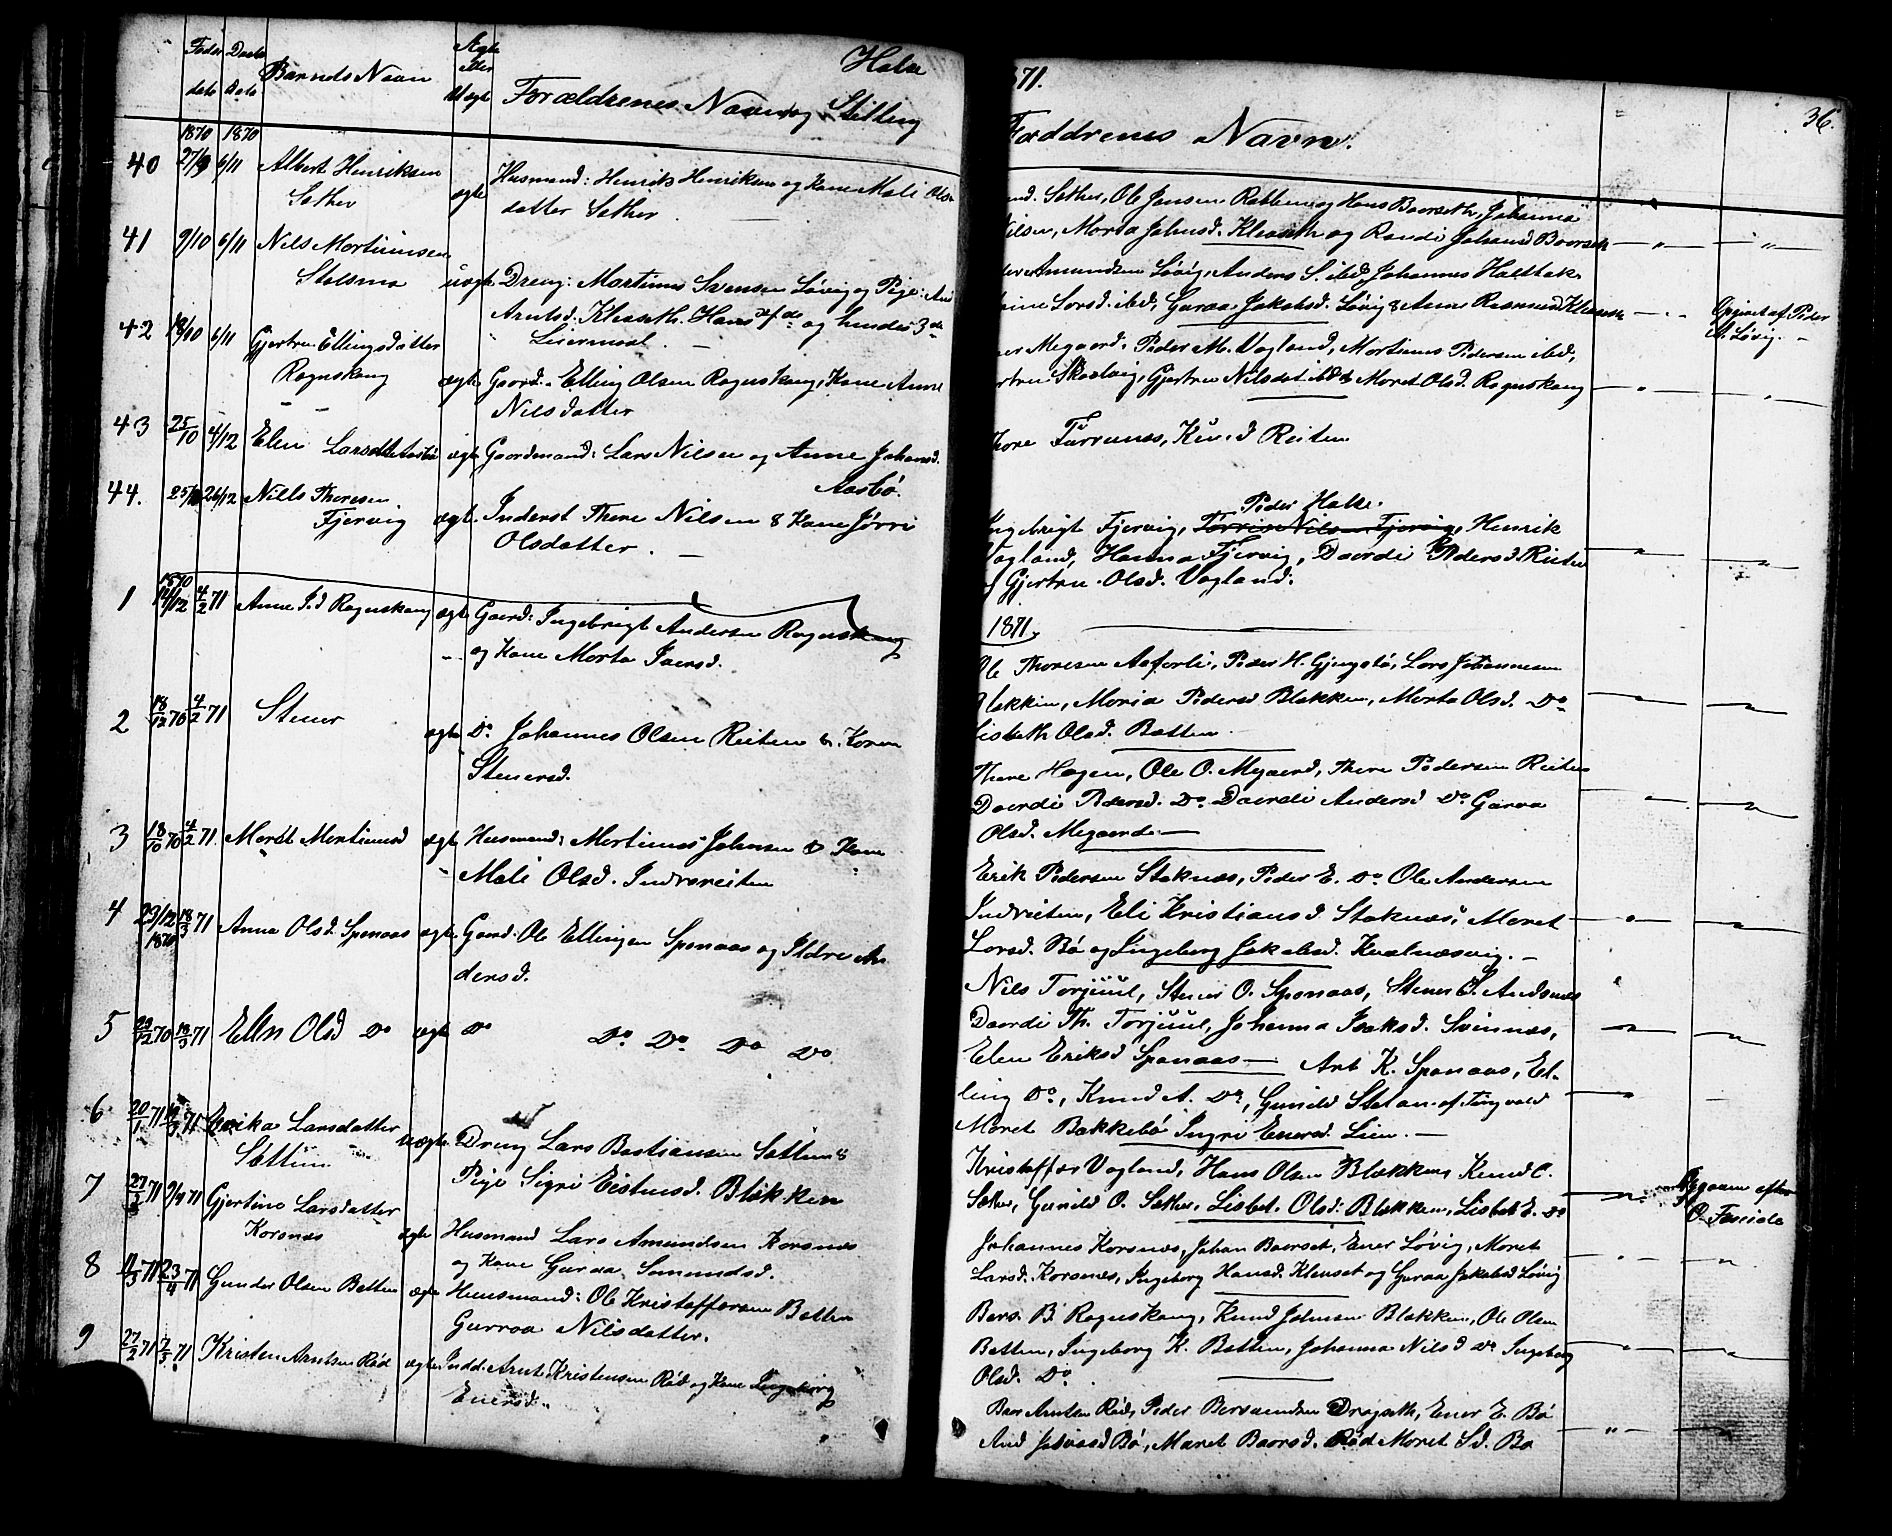 Halse
Føde dato
Daabs Dato
Barnets Navn
Ægte eller Uægte
Forældrenes Navn og Stilling
1870 1870
40 27/9 6/11 Albert Henriksen ægte Husmand: Henrik Henriksen og Kone Mali Ols-
Sæther datter Sæther.
41 9/10 6/11 Nils Martinusen uægte Dreng: Martinus Svensen Løvig og Pige:
Arntsd. Klesseth. Hans og hendes 3de
Leiermaal.
42 18/10 6/11 Gjertru Ellingsdatter
Rognskaug ægte Gaard. Elling Olsen Rognskaug, Kone Anne
Nilsdatter
43 25/10 4/12 Elen Larsdtr Aasbø ægte Gaardmand: Lars Nilsen og Anne Johansd.
Aasbø.
44. 25/10 26/12 Nills Thoresen
Fjervig ægte Inderst Thore Nilsen & Kone Jørri
Olsdatter.
1870
1 14/12 4/2 71 Anne I.d Rognskaug ægte Gaard: Ingebrigt Andersen Rognskaug
og Kone Marta Iversd.
2 18/12 70 4/2 71 Stener ægte Do Johannes Olsen Reiten & Karen
Stenersd.
3 18/10 70 4/2 71. Maret Martinusd ægte Husmand: Martinus Johnsen & Kone
Mali Olsd. Indrereiten
4 23/12 1870 18/3 71 Anna Olsd. Sponaas ægte Gaard: Ole Ellingsen Sponaas og Ildre An
dersd.
5 23/12 70 18/3 71 Ellen Olsd Do ægte Do Do Do Do Do
6 20/1 71 18/3 71 Erika Larsdatter
Sættem uægte Dreng Lars Bastiansen Sættem &
Pige Sigri Eistensd. Blekken
7 27/2 71 9/4 71 Gjertine Larsdatter
Korsnæs ægte Husmand Lars Amundsen Korsnæs
og Kone Guraa Simundsd.
8 11/3 71 23/4 71 Gunder Olsen Batten ægte Huusmand: Ole Kristoffersen Batten
Gurraa Nilsdatter.
9 27/2 71 7/5 71 Kristen Arntsen Rød ægte Indd. Arnt Kristensen Rød og Kone Ingeborg
Enersd.
71.
36.
Faddrenes Navn.
Sæther, Ole Jensen Rabben og Hans Boerseth, Johanna
Nilsen, Marta Johnsd. Klesseth og Randi Johansd Boerseth
Amundsen Løvig, Anders S. ibid, Johannes Halstak
Larsd. ibid, Guraa Jakobsd. Løvig & Ane Rasmusd Klesseth
Opgivet af Peder
A. Løvig.
Megaard, Peder M. Vagland, Martinus Pedersen ibid,
Skaalvig, Gjertru Nilsdat ibid & Maret Olsd. Rognskaug
Thore Farrenæs, Reiten
Peder Halse.
Ingebrigt Fjervig, Torris Nils Fjervig, Henrik
Vagland, Hanna Fjervig, Daardi Pedersd. Reiten
og Gjertru Olsd. Vagland.
1871.
Ole Thoresen Aaforli, Peder H. Gjengstø, Lars Johannesen
Blekken, Maria Pedersd Blekken, Marta Olsd. Do
Lisbeth Olsd. Batten
Thore Hagen, Ole O. Megaard, Thore Pedersen Reiten
Daardi Pedersd. Do Daardi Andersd Do Guraa
Olsd. Megaard
Erik Pedersen Stoknæs, Peder E. Do Ole Andersen
Indreiten, Eli Kristiansd Stoknæs, Maret
Larsd. Bø og Ingeborg Jakobsd. Kvalnæsvig.
Nils Torjuul, Stener O. Sponaas, Stener E. Andsnæs
Daardi Th. Torjuul, Johanna Isaksd. Svinnæs,
Elen Eriksd Sponaas Art K. Sponaas, El-
ling Do, Knud A. Do, Gunild Stolan af Tingvold
Maret Bakkebø Ingri Enersd. Lien.
Kristoffer Vagland, Hans Olsen Blekken Knud O.
Sæther, Gunild O. Sæther, Lisbet Olsd. Blekken, Lisbet E. Do
O. Faxeide
Johannes Korsnæs, Johan Boerset, Ener Løvig, Maret
Larsd. Korsnæs, Ingeborg Hansd. Kleuset og Guraa Jakobsd Løvig
Bers. B. Rognskaug, Knud Johnsen Blekken, Ole Olsen
Batten, Ingeborg K. Batten, Johanna Nilsd Do Ingeborg
Olsd. Do
Baar Arntsen Rød, Peder Bersvendsen Dragseth, Ener E. Bø
And Bø, Maret Baarsd. Rød Maret Bø